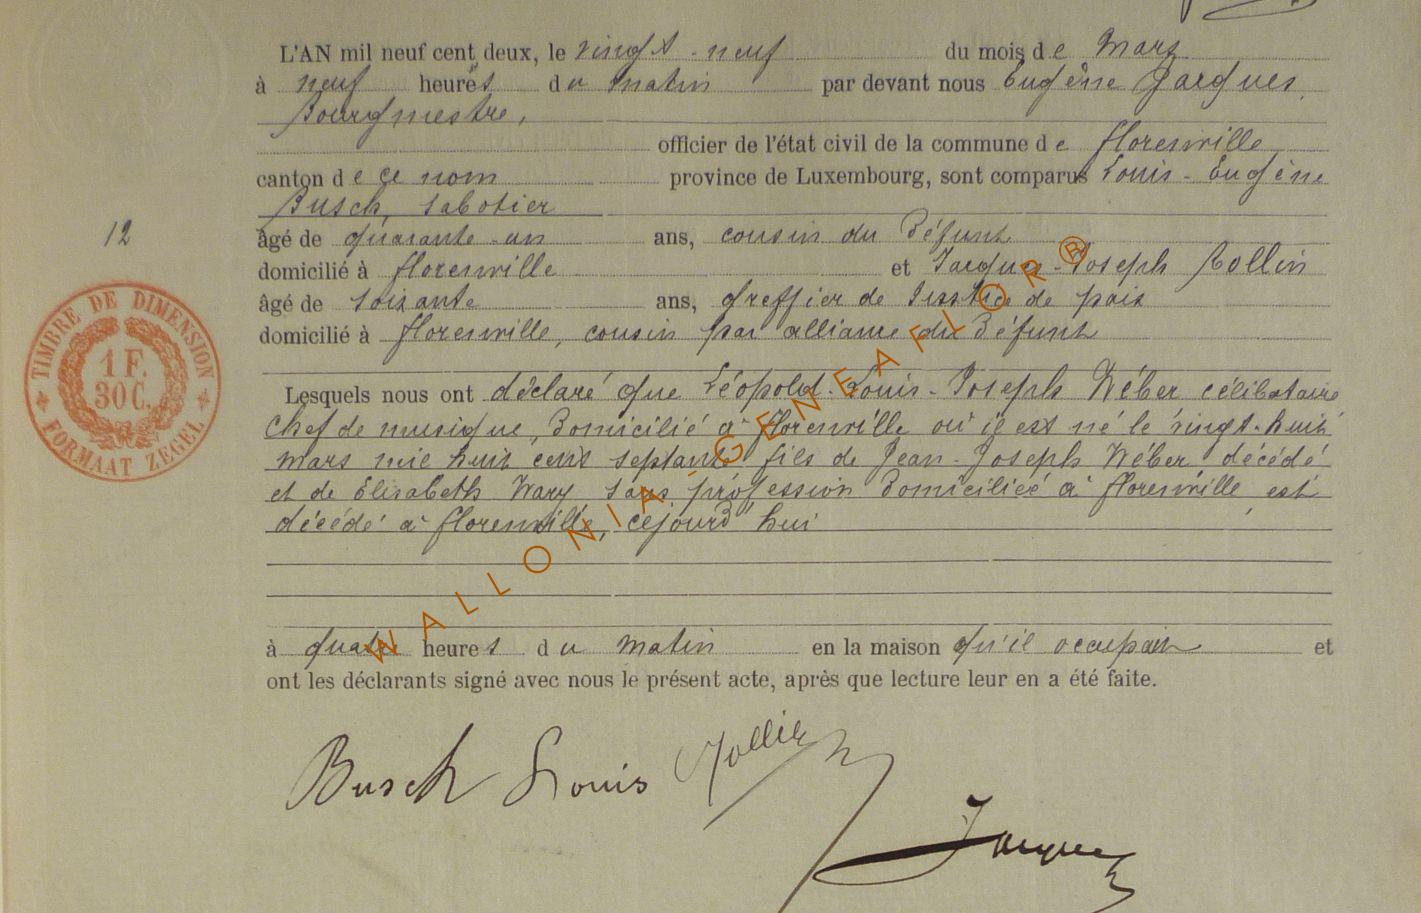 L'AN mil neuf cent deux, le vingt-neuf du mois de Mars
à neuf heures du matin par devant nous Eugène Jacques,
Bourgmestre,
officier de l'état civil de la commune de florenville
canton de ce nom province de Luxembourg, sont comparus Louis-Eugène
Busch, sabotier
âgé de quarante-un ans, cousin du Défunt
domicilié à florenville et Jacques-Joseph Rollin
âgé de soixante ans, greffier de Justice de paix
domicilié à florenville, cousin par alliance du Défunt
Lesquels nous ont déclaré que Léopold-Louis-Joseph Wéber célibataire
chef de musique, Domicilié à florenville où il est né le vingt-huit
mars mil huit cent septante fils de Jean-Joseph Wéber décédé
et de Elisabeth Wary sans profession Domiciliée à florenville, est
décédé à florenville, cejourd'hui
à quatre heures du matin en la maison qu'il occupait et
ont les déclarants signé avec nous le présent acte, après que lecture leur en a été faite.
Busch Louis Rollin
Jacques
12
TIMBRE DE DIMENSION
1 F.
30 C.
FORMAAT ZEGEL
WALLONIA-GENEAFLOR®